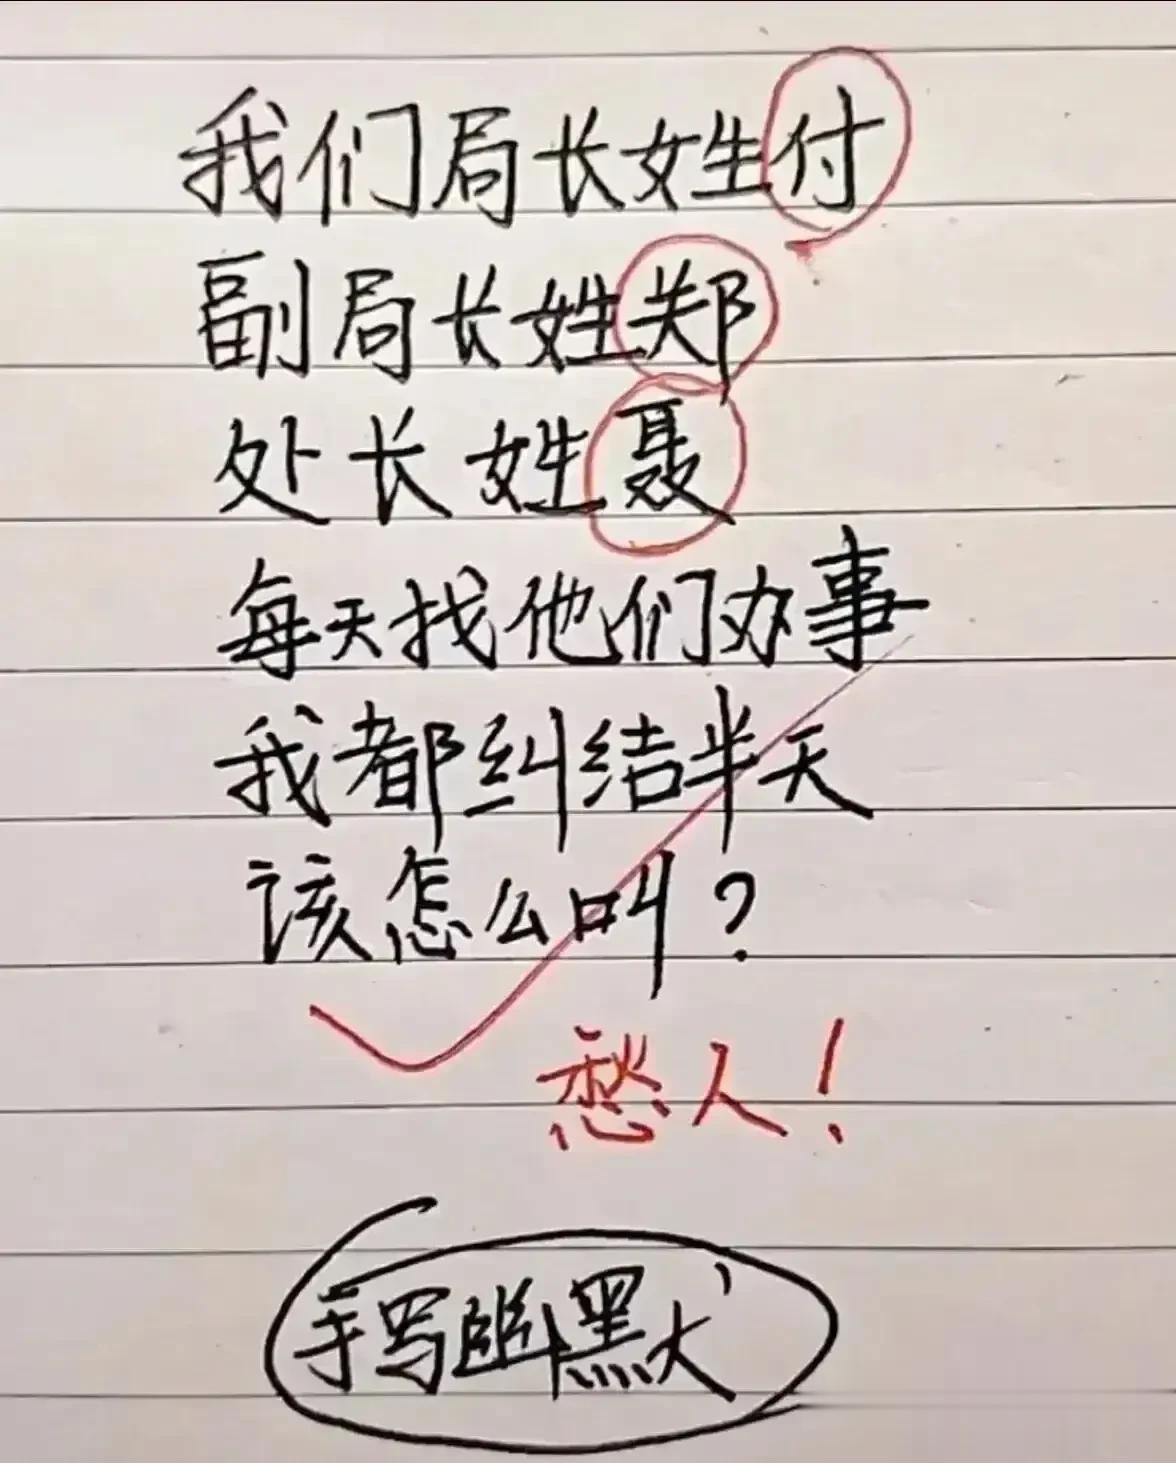 我们局长姓付
副局长姓郑
处长姓聂
每天找他们办事
我都纠结半天
该怎么叫？
愁人！
手写幽默